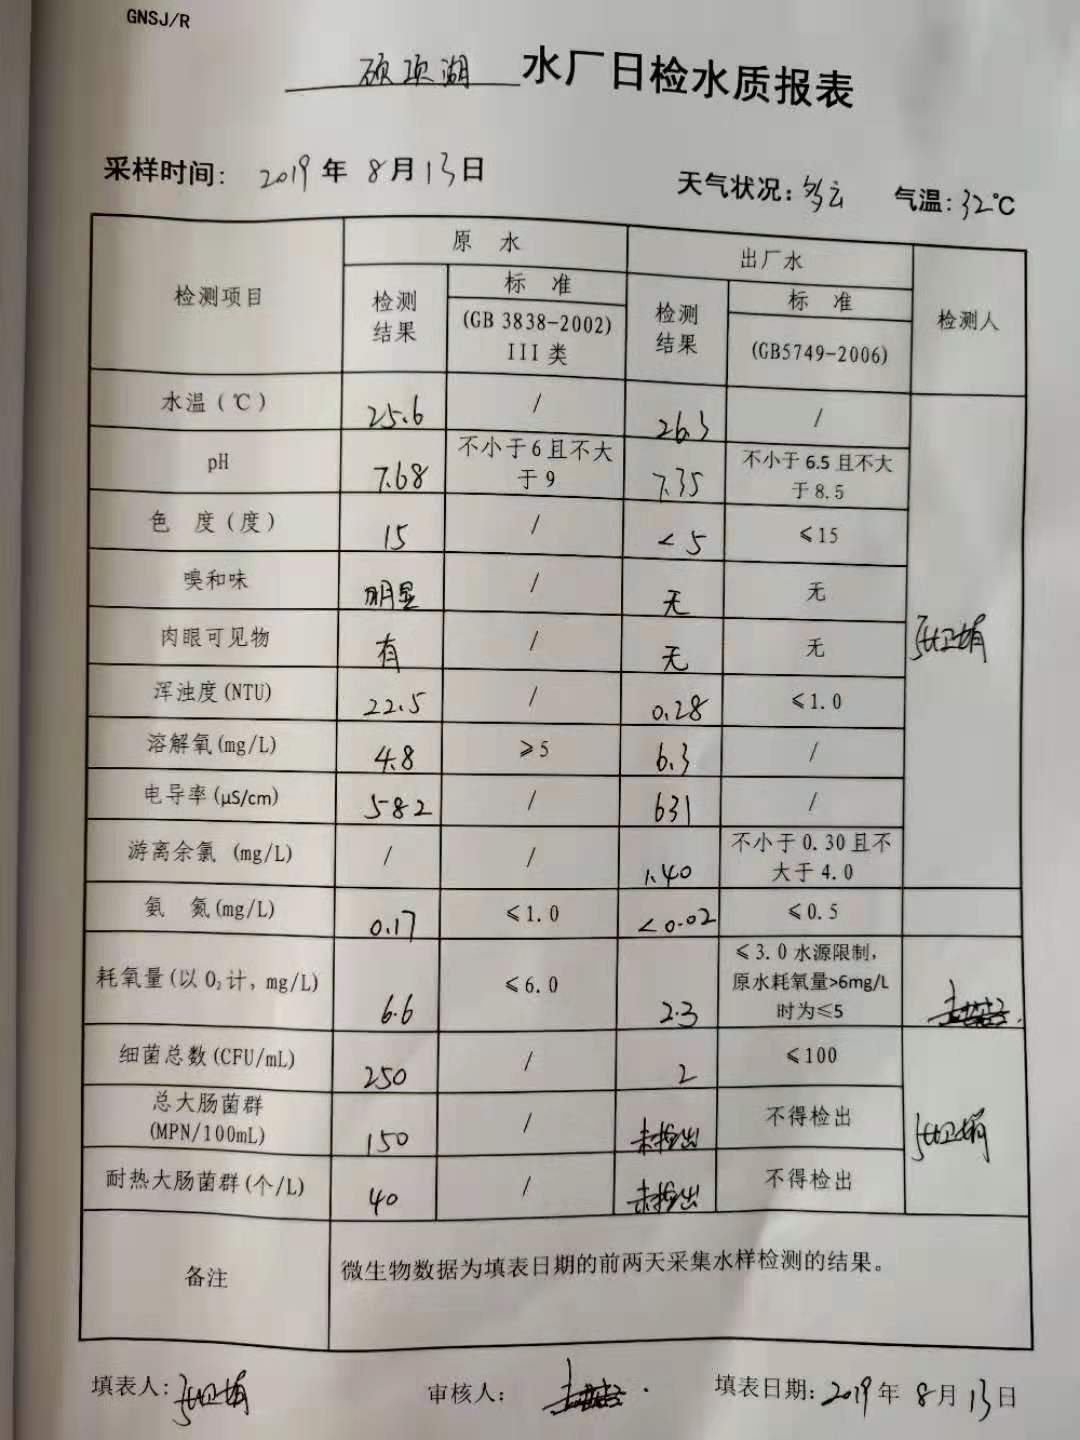 GNSJ/R
硕项湖 水厂日检水质报表
采样时间: 2019年8月13日 天气状况:多云 气温:32℃
检测项目 原 水 出厂水 检测人
检测结果 标 准 检测结果 标 准
(GB 3838-2002) III类 (GB5749-2006)
水温(℃) 25.6 / 26.3 /
pH 7.68 不小于6且不大于9 7.35 不小于6.5且不大于8.5
色 度(度) 15 / <5 ≤15
嗅和味 明显 / 无 无
肉眼可见物 有 / 无 无
浑浊度(NTU) 22.5 / 0.28 ≤1.0
溶解氧(mg/L) 4.8 ≥5 6.3 /
电导率(μS/cm) 582 / 631 /
游离余氯 (mg/L) / / 1.40 不小于0.30且不大于4.0
氨 氮(mg/L) 0.17 ≤1.0 <0.02 ≤0.5
耗氧量(以O₂计, mg/L) 6.6 ≤6.0 2.3 ≤3.0水源限制,原水耗氧量>6mg/L时为≤5
细菌总数(CFU/mL) 250 / 2 ≤100
总大肠菌群(MPN/100mL) 150 / 未检出 不得检出
耐热大肠菌群(个/L) 40 / 未检出 不得检出
备注 微生物数据为填表日期的前两天采集水样检测的结果。
填表人: 审核人: 填表日期:2019年8月13日